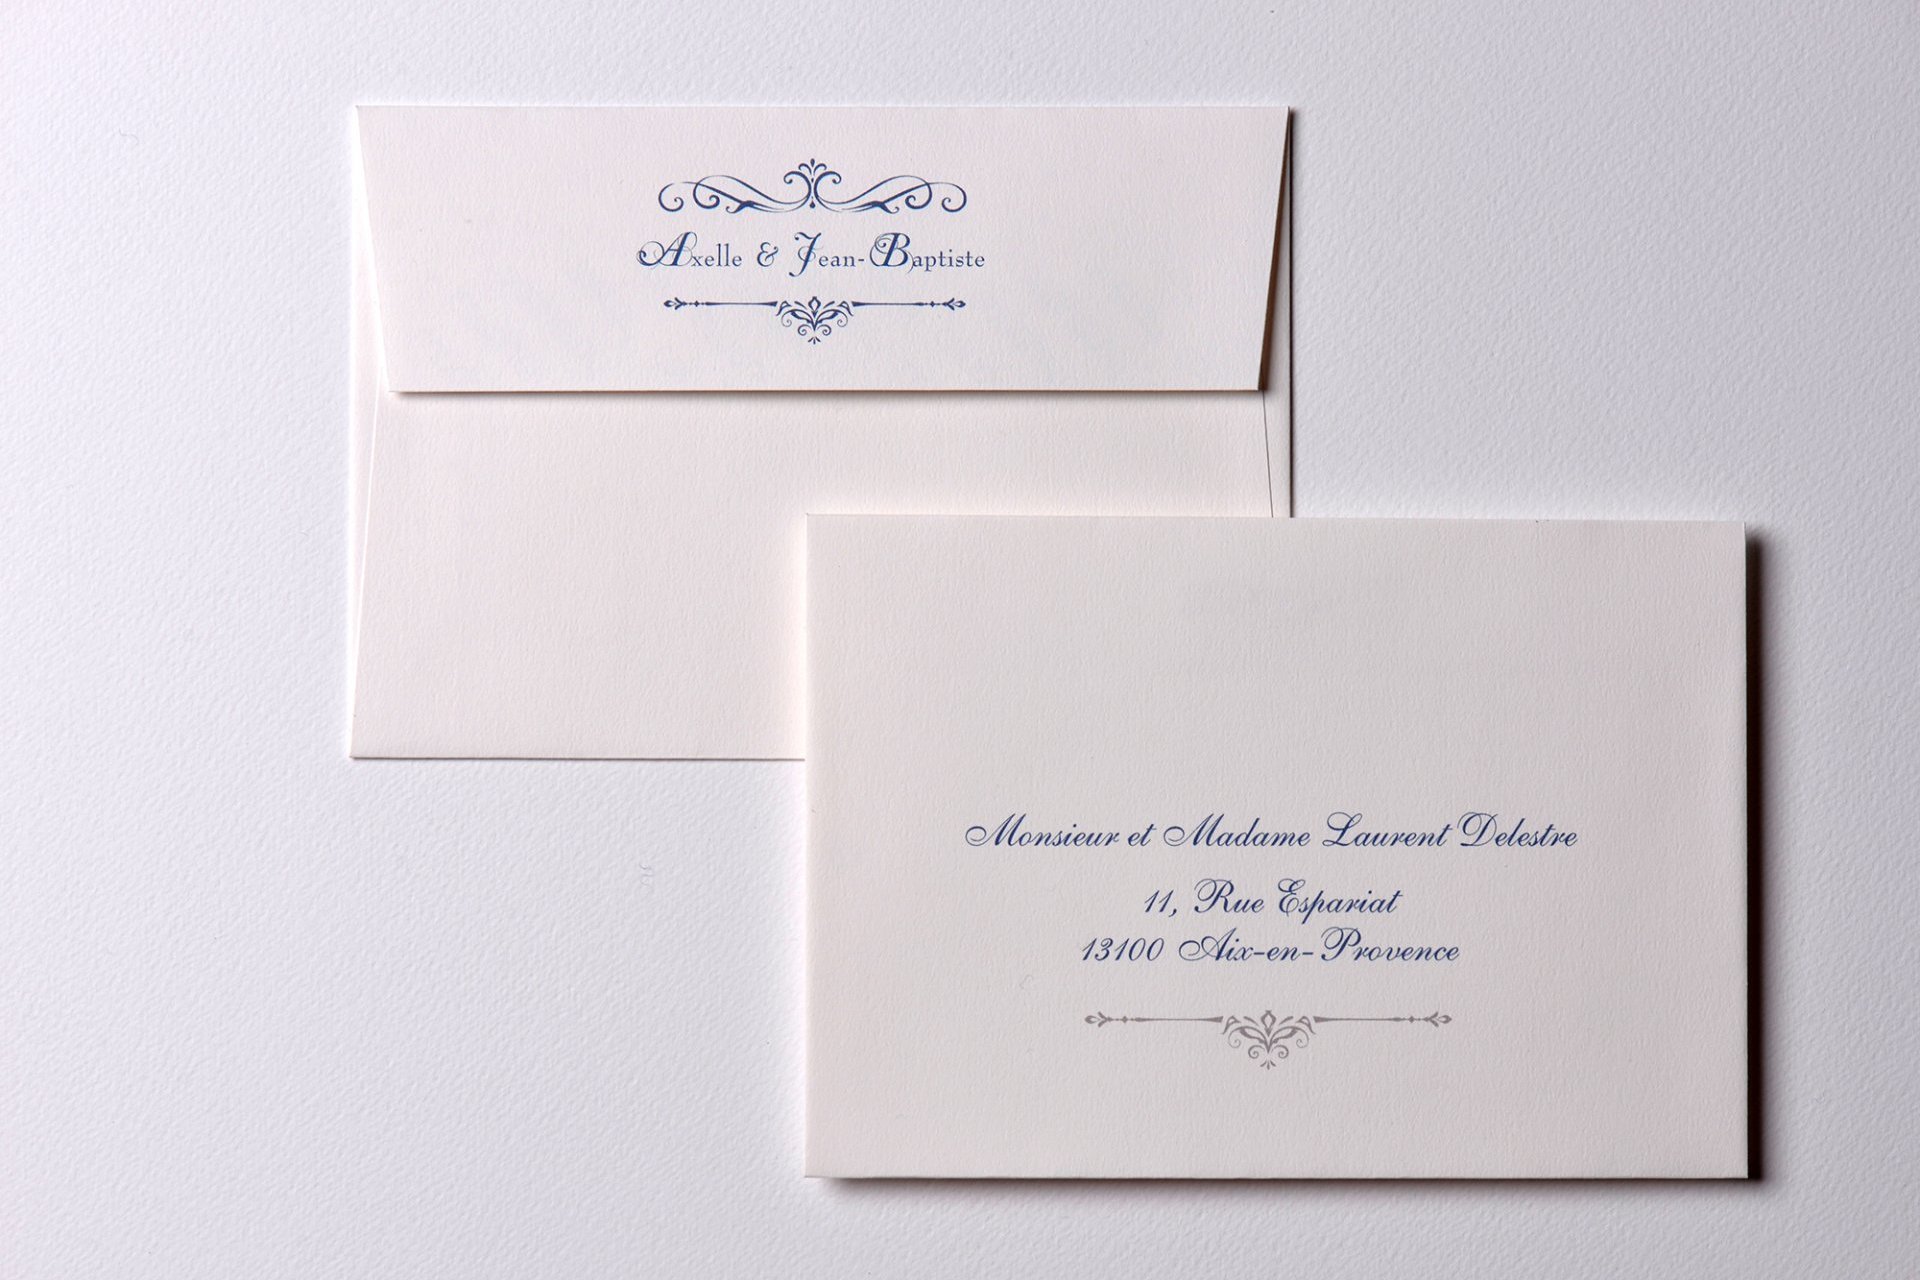 Axelle & Jean-Baptiste
Monsieur et Madame Laurent Delestre
11, Rue Espariat
13100 Aix-en-Provence